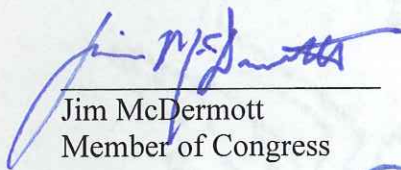 Jim McDermott
Jim McDermott
Member of Congress